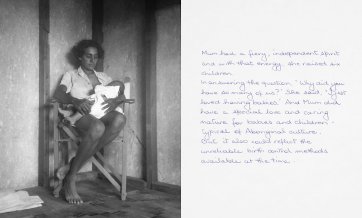 Mum had a fiery, independent spirit
and with that energy, she raised six
children.
In answering the question "Why did you
have so many of us?" She said, "I just
loved having babies" And Mum did
have a special love and caring
nature for babies and children -
typical of Aboriginal culture.
But it also could reflect the
unreliable birth control methods
available at the time.